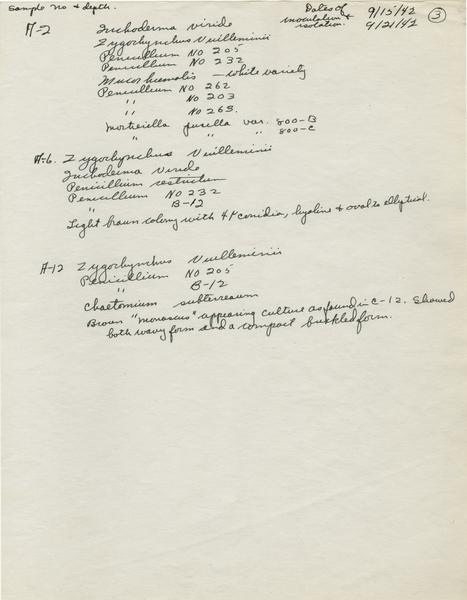 Sample no + depth.
Dates of inoculation + isolation.
9/15/42
9/21/42
3
A-2 Trichoderma viride
Zygorhynchus Vuilleminii
Penicillium NO 205
Penicillium NO 232
Mucor hiemalis — white variety
Penicillium NO 262
" NO 203
" NO 263.
Mortierella pusilla var. 800-B
" " " 800-C
A-6. Zygorhynchus Vuilleminii
Trichoderma Viride
Penicillium restrictum
Penicillium NO 232
" B-12
Light brown colony with 4µ conidia, hyaline + oval to elliptical.
A-12 Zygorhynchus Vuilleminii
Penicillium NO 205
" B-12
Chaetomium subterraeum
Brown "monascus" appearing culture as found in C-12. Showed
both wavy form and a compact buckled form.